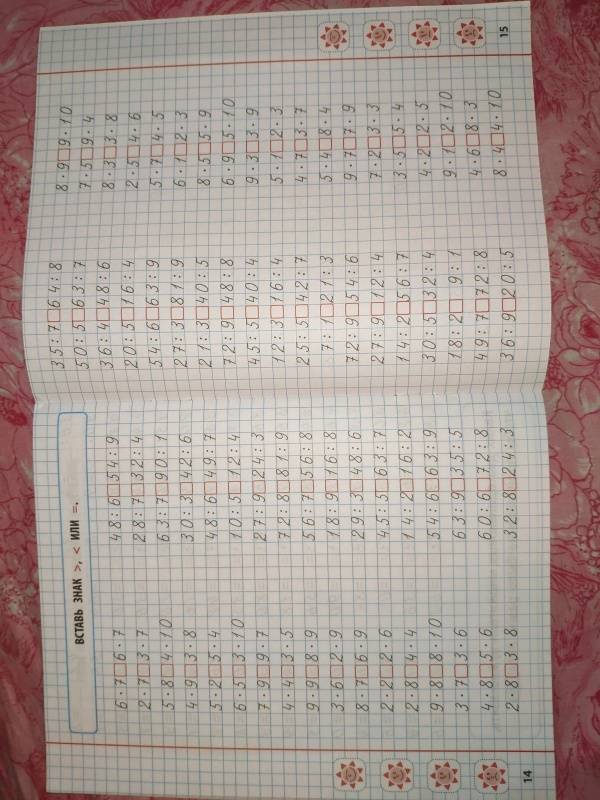 ВСТАВЬ ЗНАК >, < ИЛИ =.
6·7□6·7
2·7□3·7
5·8□4·10
4·9□3·8
5·2□5·4
6·5□3·10
7·9□9·7
4·4□3·5
9·9□8·9
3·6□2·9
8·7□6·9
2·2□2·6
2·8□4·4
9·8□8·10
3·7□3·6
4·8□5·6
2·8□3·8
48:6□54:9
28:7□32:4
63:7□90:1
30:3□42:6
48:6□49:7
10:5□12:4
27:9□24:3
72:8□81:9
56:7□56:8
18:9□16:8
29:3□48:6
45:5□63:7
14:2□16:2
54:6□63:9
63:9□35:5
60:6□72:8
32:8□24:3
14
35:7□64:8
50:5□63:7
36:4□48:6
20:5□16:4
54:6□63:9
27:3□81:9
21:3□40:5
72:9□48:8
45:5□40:4
12:3□16:4
25:5□42:7
7:1□21:3
72:9□54:6
27:9□12:4
14:2□56:7
30:5□32:4
18:2□9:1
49:7□72:8
36:9□20:5
8·9□9·10
7·5□9·4
8·3□3·8
2·5□4·6
5·7□4·5
6·1□2·3
8·5□5·9
6·9□5·10
9·3□3·9
5·1□2·3
4·7□3·7
5·4□8·4
9·7□7·9
7·2□3·3
3·5□5·4
4·2□2·5
9·1□2·10
4·6□8·3
8·4□4·10
15